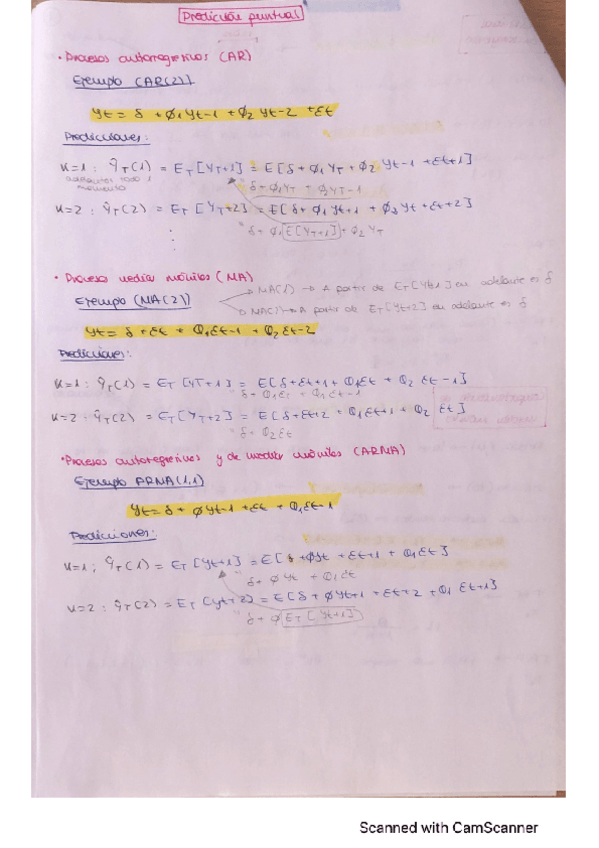 Predicción puntual
· Procesos autorregresivos (AR)
Ejemplo (AR(2))
yt = δ + ϕ1yt-1 + ϕ2 yt-2 + εt
Predicciones:
K=1 : ŷT(1) = ET[YT+1] = E[δ + ϕ1 YT + ϕ2 Yt-1 + εt+1]
momento
" δ + ϕ1YT + ϕ2YT-1
K=2 : ŷT(2) = ET[YT+2] = E[δ + ϕ1 Yt+1 + ϕ2Yt + εt+2]
" δ + ϕ1 E[YT+1] + ϕ2 YT
· Procesos medias móviles (MA)
→ MA(1) → A partir de ET[Yt+1] en adelante es δ
Ejemplo (MA(2))
→ MA(2) → A partir de ET[Yt+2] en adelante es δ
yt = δ + εt + θ1εt-1 + θ2 εt-2
Predicciones:
K=1 : ŷT(1) = ET[YT+1] = E[δ + εt+1 + θ1εt + θ2 εt-1]
" δ + θ1εt + θ1εt-1
K=2 : ŷT(2) = ET[YT+2] = E[δ + εt+2 + θ1εt+1 + θ2 εt]
" δ + θ2εt
· Procesos autorregresivos y de medias móviles (ARMA)
Ejemplo ARMA(1,1)
yt = δ + ϕyt-1 + εt + θ1εt-1
Predicciones:
K=1 ; ŷT(1) = ET[yt+1] = E[δ + ϕyt + εt+1 + θ1εt]
" δ + ϕ yt + θ1εt
K=2 : ŷT(2) = ET[yt+2] = E[δ + ϕyt+1 + εt+2 + θ1 εt+1]
" δ + ϕ ET[yt+1]
Scanned with CamScanner